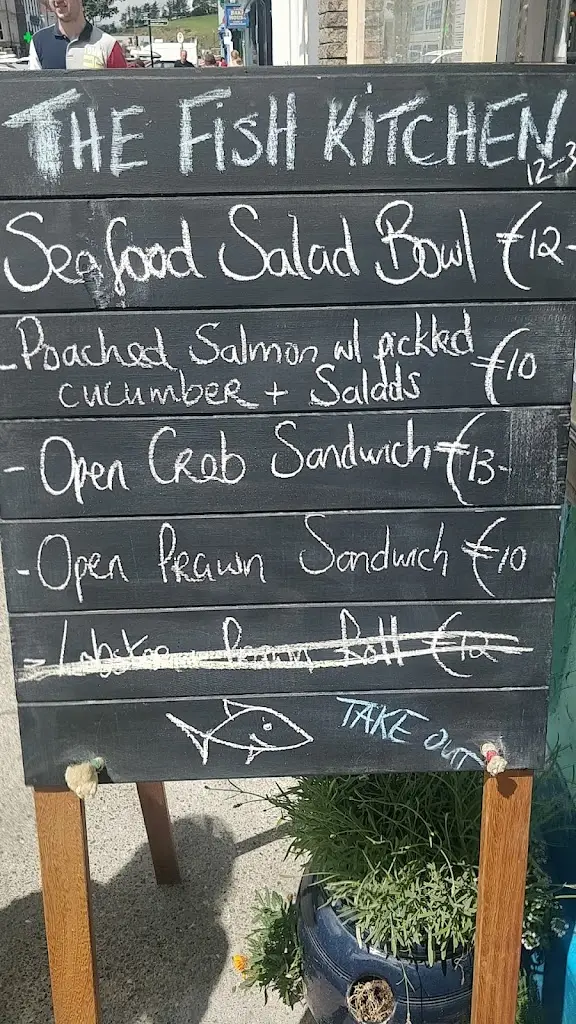 THE FISH KITCHEN
12-3
Seafood Salad Bowl €12-
-Poached Salmon w/ pickled
cucumber + Salads €10
- Open Crab Sandwich €13-
- Open Prawn Sandwich €10
- Lobster Prawn Roll €12
TAKE OUT